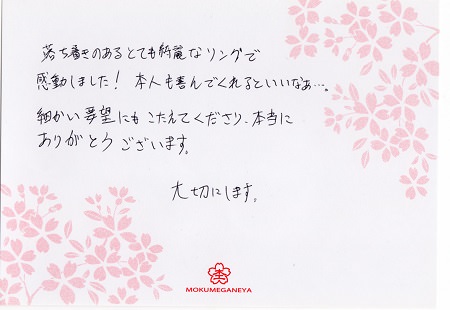 落ち着きのあるとても綺麗なリングで
感動しました! 本人も喜んでくれるといいなぁ…。
細かい要望にもこたえてくださり、本当に
ありがとうございます。
大切にします。
MOKUMEGANEYA